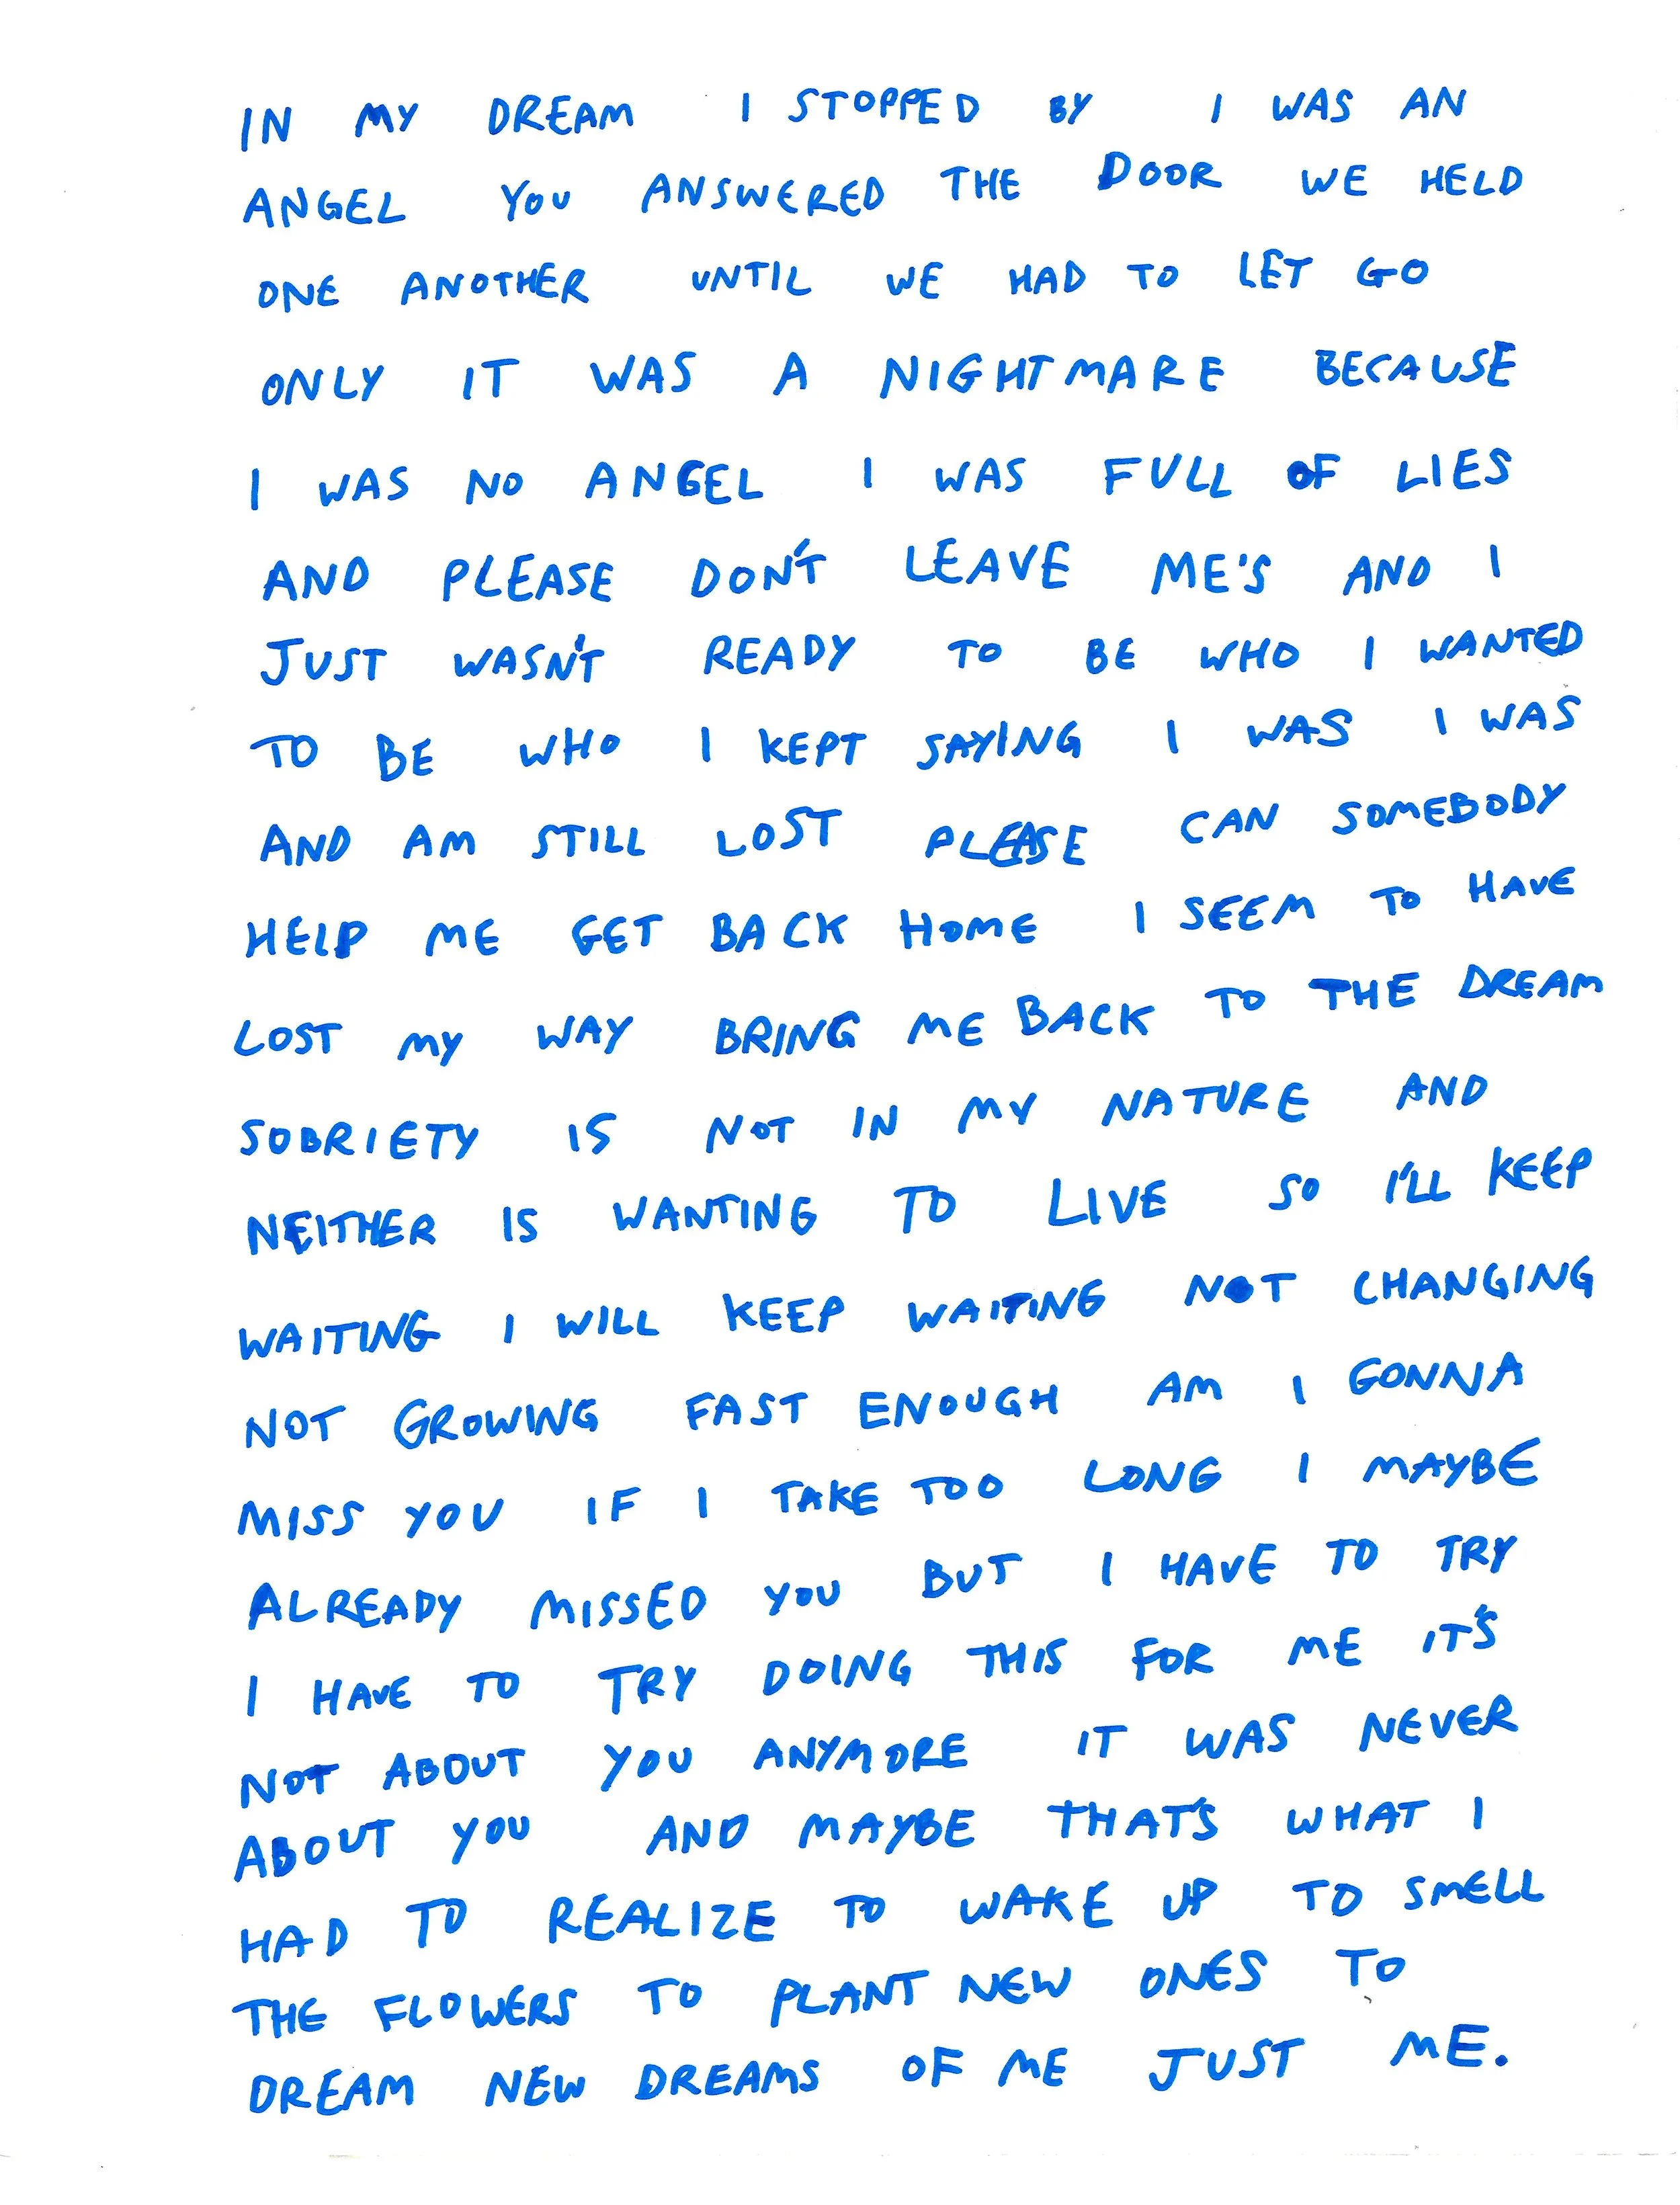 IN MY DREAM I STOPPED BY I WAS AN
ANGEL YOU ANSWERED THE DOOR WE HELD
ONE ANOTHER UNTIL WE HAD TO LET GO
ONLY IT WAS A NIGHTMARE BECAUSE
I WAS NO ANGEL I WAS FULL OF LIES
AND PLEASE DON'T LEAVE ME'S AND I
JUST WASN'T READY TO BE WHO I WANTED
TO BE WHO I KEPT SAYING I WAS I WAS
AND AM STILL LOST PLEASE CAN SOMEBODY
HELP ME GET BACK HOME I SEEM TO HAVE
LOST MY WAY BRING ME BACK TO THE DREAM
SOBRIETY IS NOT IN MY NATURE AND
NEITHER IS WANTING TO LIVE SO I'LL KEEP
WAITING I WILL KEEP WAITING NOT CHANGING
NOT GROWING FAST ENOUGH AM I GONNA
MISS YOU IF I TAKE TOO LONG I MAYBE
ALREADY MISSED YOU BUT I HAVE TO TRY
I HAVE TO TRY DOING THIS FOR ME IT'S
NOT ABOUT YOU ANYMORE IT WAS NEVER
ABOUT YOU AND MAYBE THAT'S WHAT I
HAD TO REALIZE TO WAKE UP TO SMELL
THE FLOWERS TO PLANT NEW ONES TO
DREAM NEW DREAMS OF ME JUST ME.